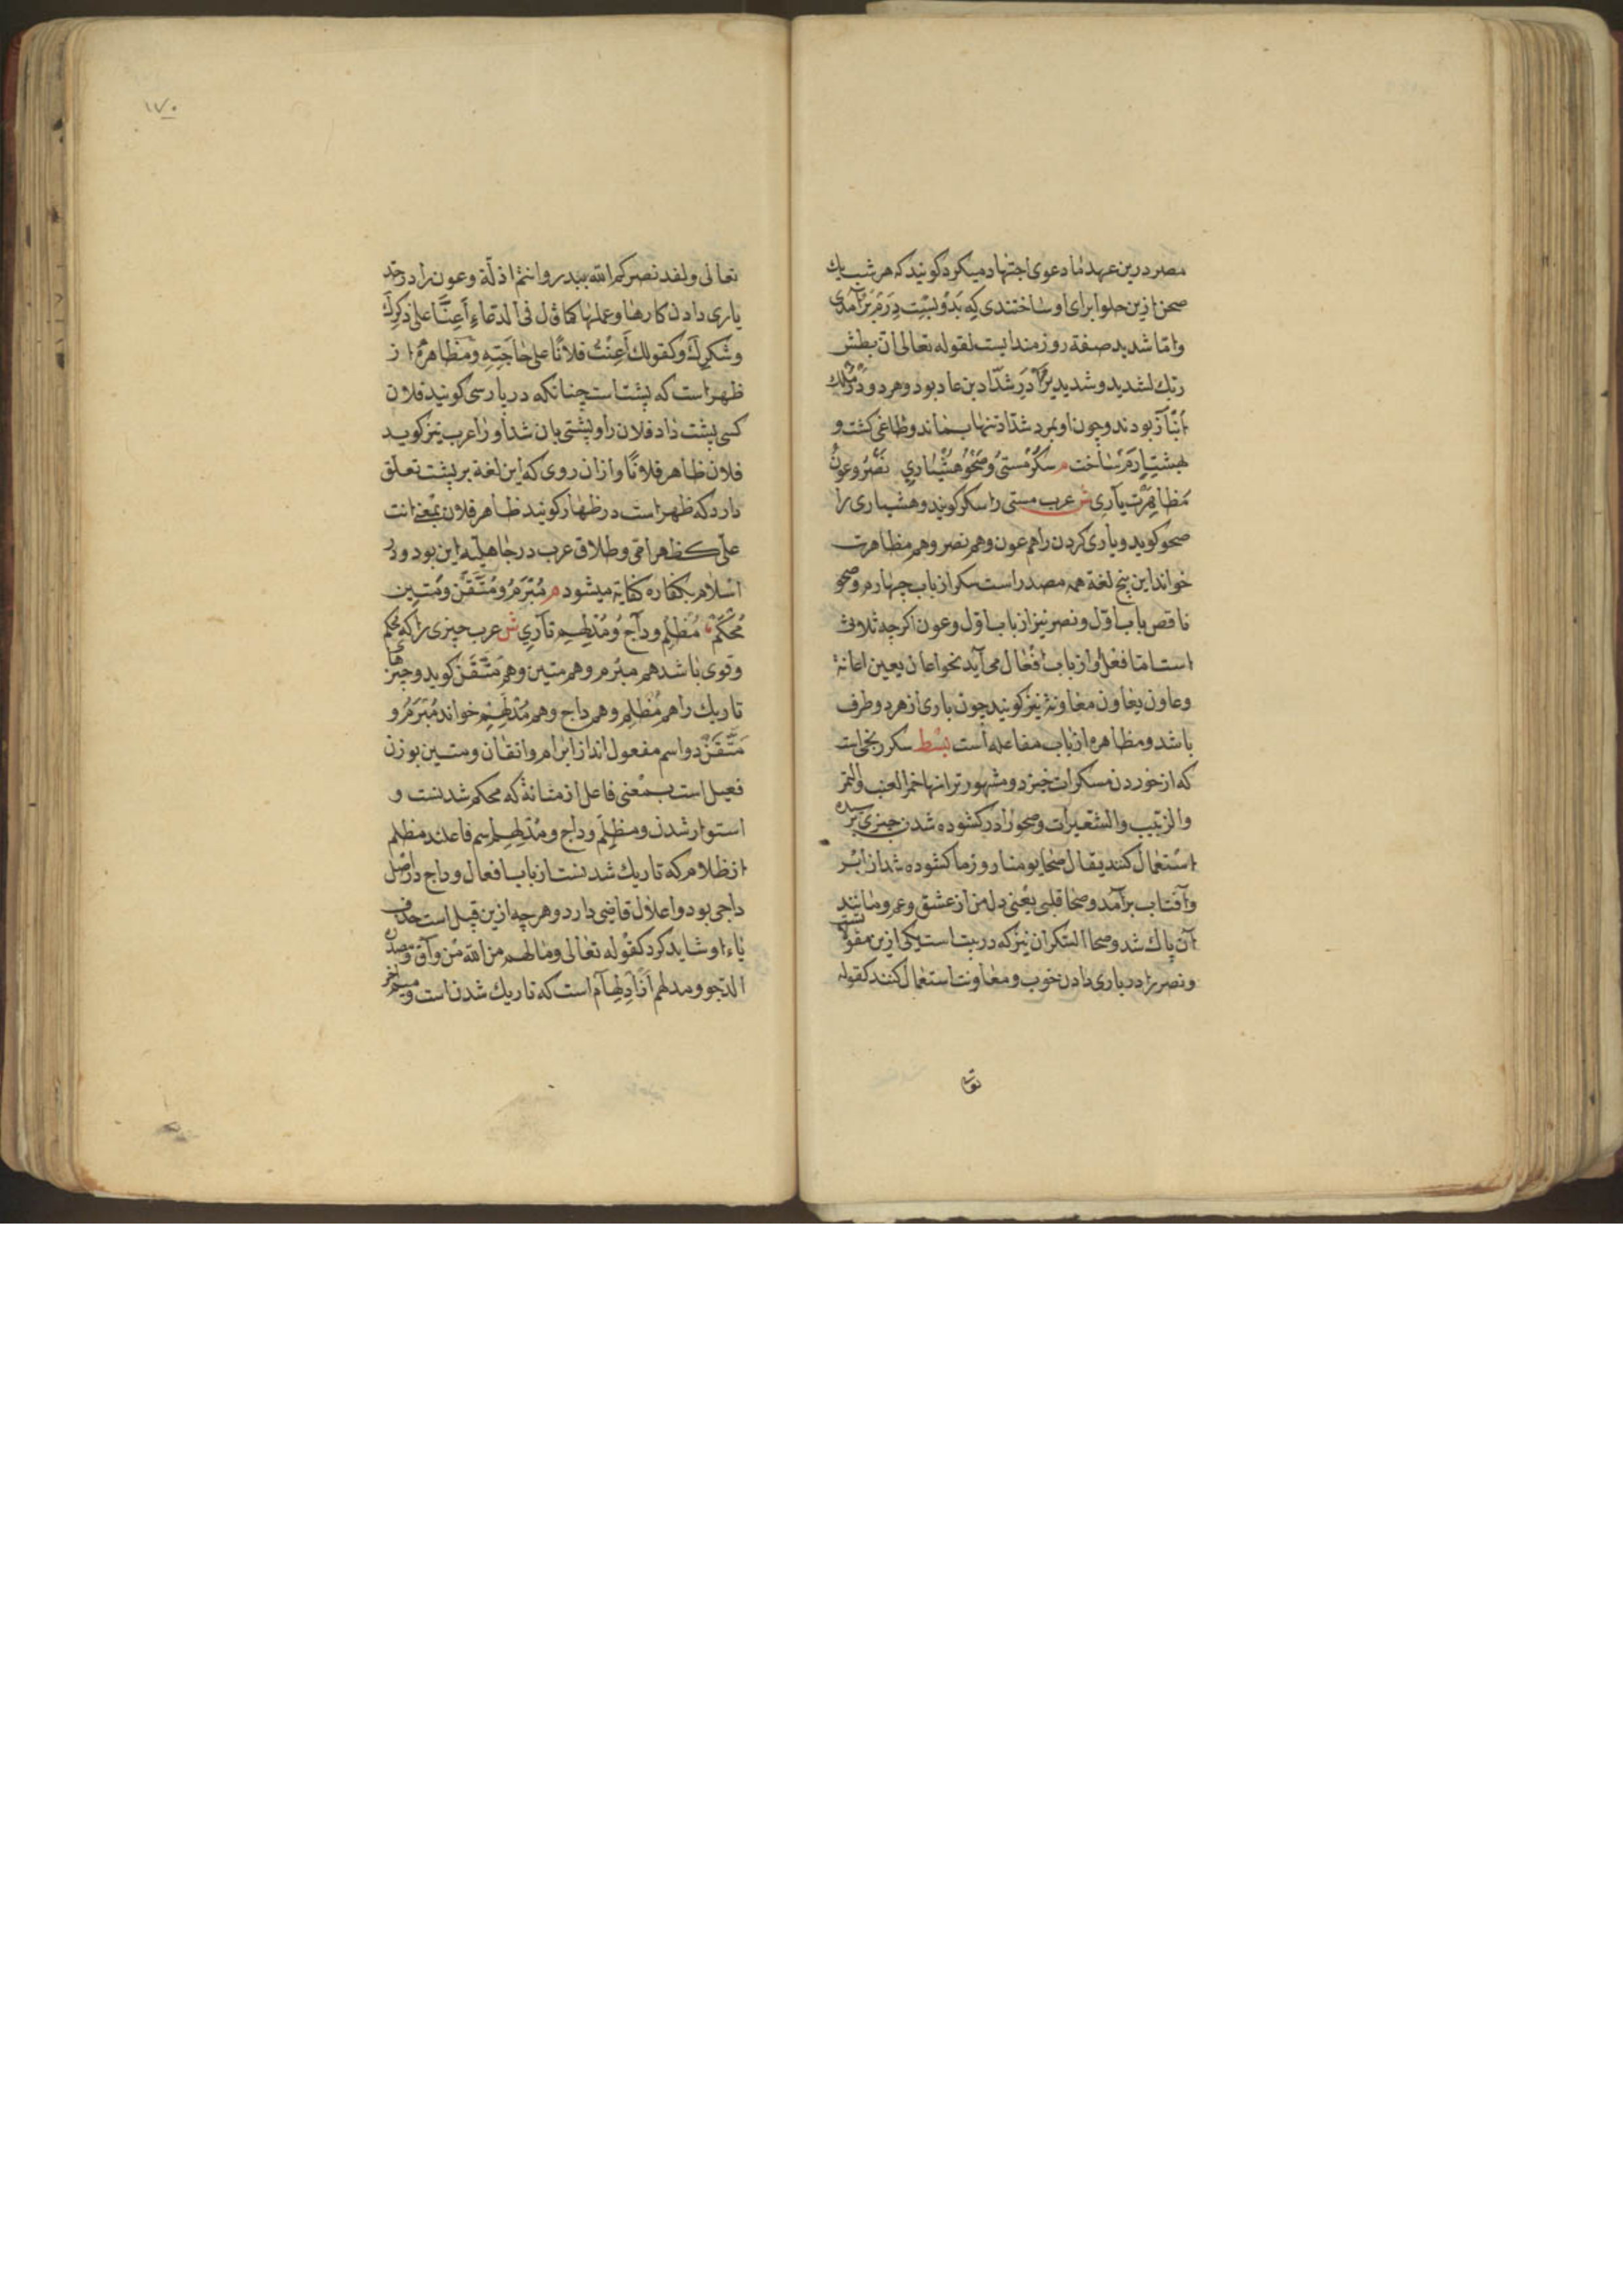 مصر درین عهد ما دعوی اجتهاد میکرد کویند که هر شب یك
صحن ازین حلوا برای او ساختندی که بدویست درم برآمدی
وامّا شدید صفة روزمندایست لقوله تعالی انّ بطش
ربك لشدید وشدید برادر شدّاد بن عاد بود وهر دو در ملك
انباز بودند وچون او بمرد شدّاد تنها بماند وطاغی کشت و
بهشت ارم ساخت م سُکْر مستیُ وصَحْو هشیاری نَصْر وعون
مظاهرت یاری ش عرب مستی را سکر کویند وهشیاری را
صحو کوید ویاری کردن را هم عون وهم نصر وهم مظاهرت
خواند این پنج لغة همه مصدر است سکر از باب چهارم وصحو
ناقص باب اوّل ونصر نیز از باب اوّل وعون اکرچه ثلاثی
است امّا فعل او از باب افعال می آید نحو اعان یعین اعانة
وعاون یعاون معاونة نیز کویند چون یاری از هر دو طرف
باشد ومظاهره از باب مفاعله است بسط سکر رنجی است
که از خوردن مسکرات خیزد ومشهورتر انها خمر العنب والتمر
والزبیب والشعیر است وصحو را در کشوده شدن چیزی
استعمال کنند یقال صحا یومنا روز ما کشوده شد از ابر
وآفتاب برآمد وصحا قلبی یعنی دل من از عشق وغم ومانند
آن پاك شد وصحا السکران نیز که در بیت است یکی ازین مقوله
ونصر را در یاری دادن خوب ومعاونت استعمال کنند کقوله
١٧٠
تعالی ولقد نصرکم الله ببدر وانتم اذلّة وعون را در
یاری دادن کارها وعملها کما قال فی الدعاء اَعِنَّا علی ذکرِك
وشکرِك وکقولك اَعَنْتُ فلانًا علی حاجَتِه ومظاهرة از
ظهر است که پشت است چنانکه در پارسی کویند فلان
کسی پشت داد فلان را وپشتی بان شد او را عرب نیز کوید
فلان ظاهر فلانًا وازان روی که این لغة بر پشت تعلق
دارد که ظهر است در ظهار کویند ظاهر فلان بمعنی انت
علیّ کظهر امّی وطلاق عرب در جاهلیّه این بود ودر
اسلام بکفاره کفایة میشود م مُبْرَمْ ومُتْقَن ومَتین
مُحکَمْ مُظلِم وداج ومُدْلَهِم تاری ش عرب چیزی را که محکم
وقوی باشد هم مبرم وهم متین وهم متقن کوید وچیزهای
تاریك را هم مُظلِم وهم داج وهم مُدْلَهِم خواند مُبْرَم و
متقن دو اسم مفعول اند از ابرام واتقان ومتین بوزن
فعیل است بمعنی فاعل از متانة که محکم شدنست و
استوار شدن ومظلِم وداج ومُدْلَهِم اسم فاعلند مظلم
از ظلام که تاریك شدنست از باب افعال وداج در اصل
داجی بود واعلال قاضی دارد وهر چه ازین قبیل است حذف
یاء او شاید کرد کقوله تعالی وما لهم من الله من واق ومصدره
الدّجو ومدلهم از ادلهام است که تاریك شدنست